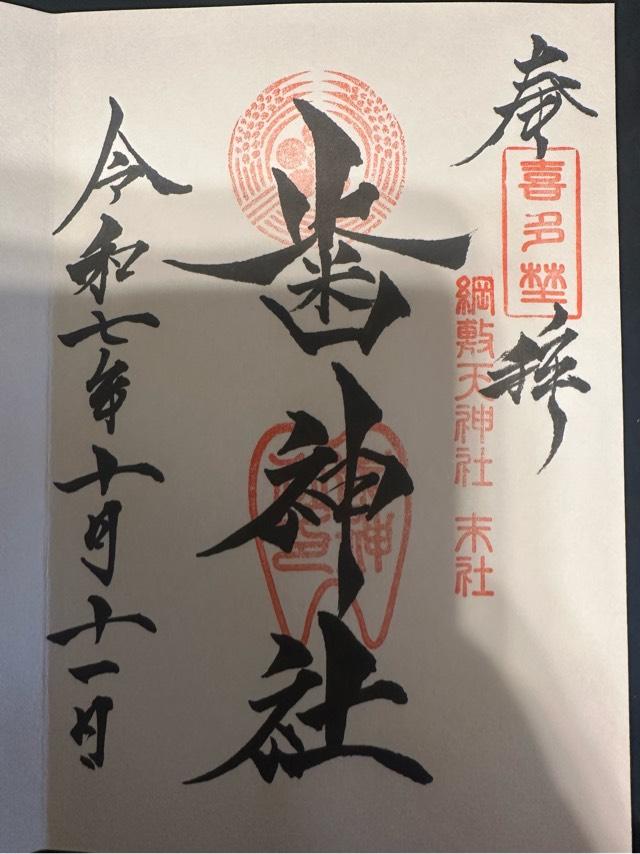 奉拝
喜多埜
綱敷天神社 末社
歯神社
令和七年十月十一日